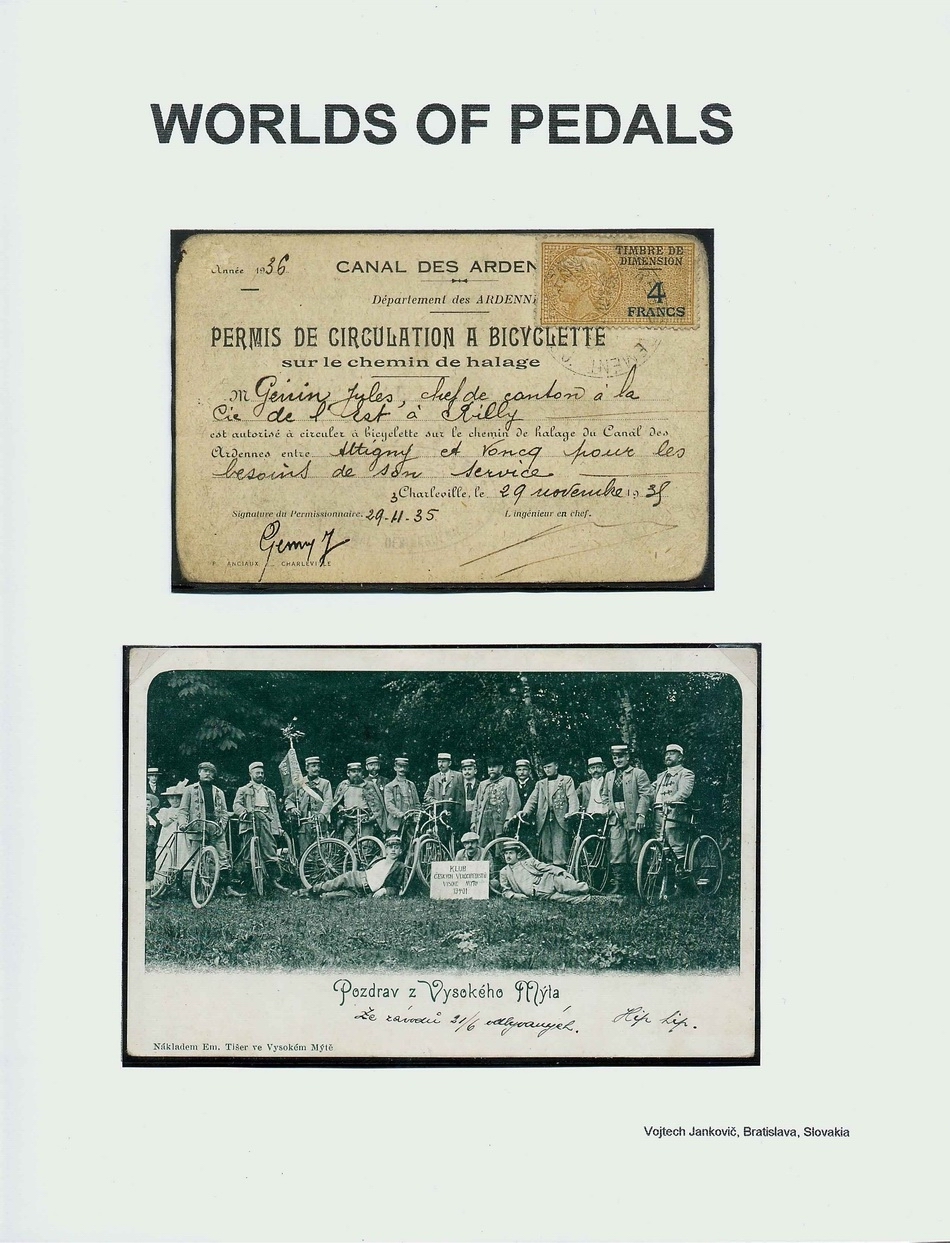 WORLDS OF PEDALS
Année 1936
CANAL DES ARDEN
TIMBRE DE
DIMENSION
4
FRANCS
Département des ARDENN
PERMIS DE CIRCULATION A BICYCLETTE
sur le chemin de halage
M Génin Jules, chef de canton à la
Cie de l'Est à Rilly
est autorisé à circuler à bicyclette sur le chemin de halage du Canal des
Ardennes entre Attigny et Voncq pour les
besoins de son service
Charleville, le 29 novembre 1935
Signature du Permissionnaire. 29-11-35 L'ingénieur en chef.
ANCIAUX CHARLEVILLE
KLUB
ČESKÝCH VELOCIPEDISTŮ
VYSOKÉ MÝTO
1901
Pozdrav z Vysokého Mýta
Ze závodů 21/6 odbývaných. Hip hip.
Nákladem Em. Tišer ve Vysokém Mýtě
Vojtech Jankovič, Bratislava, Slovakia